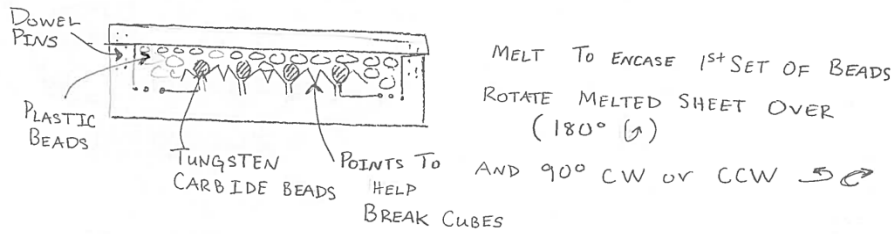 DOWEL
PINS
PLASTIC
BEADS
TUNGSTEN
CARBIDE BEADS
POINTS TO
HELP
BREAK CUBES
MELT TO ENCASE 1st SET OF BEADS
ROTATE MELTED SHEET OVER
(180° ↺)
AND 90° CW or CCW ⤿ ⤾